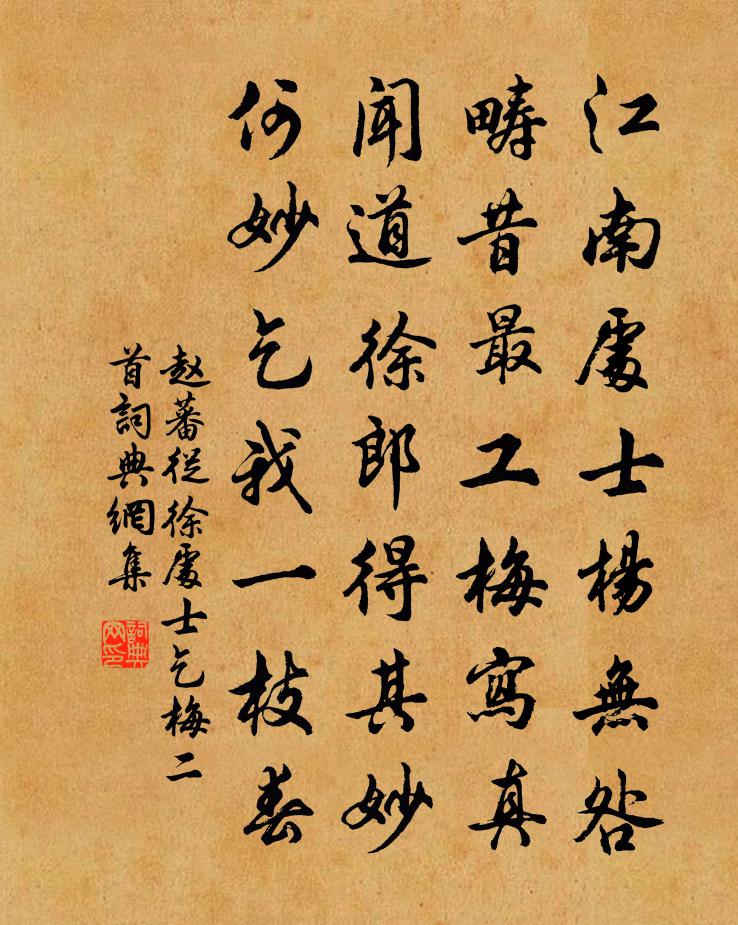 江南處士楊無咎
疇昔最工梅寫真
聞道徐郎得其妙
何妙乞我一枝春
赵蕃從徐處士乞梅二
首詞典網集
詞典
网印